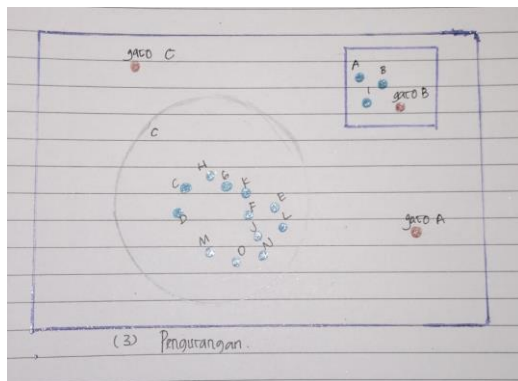 gaco C
A
B
I
gaco B
C
H
G
K
C
E
F
D
L
J
M
N
O
gaco A
(3) Pengurangan.